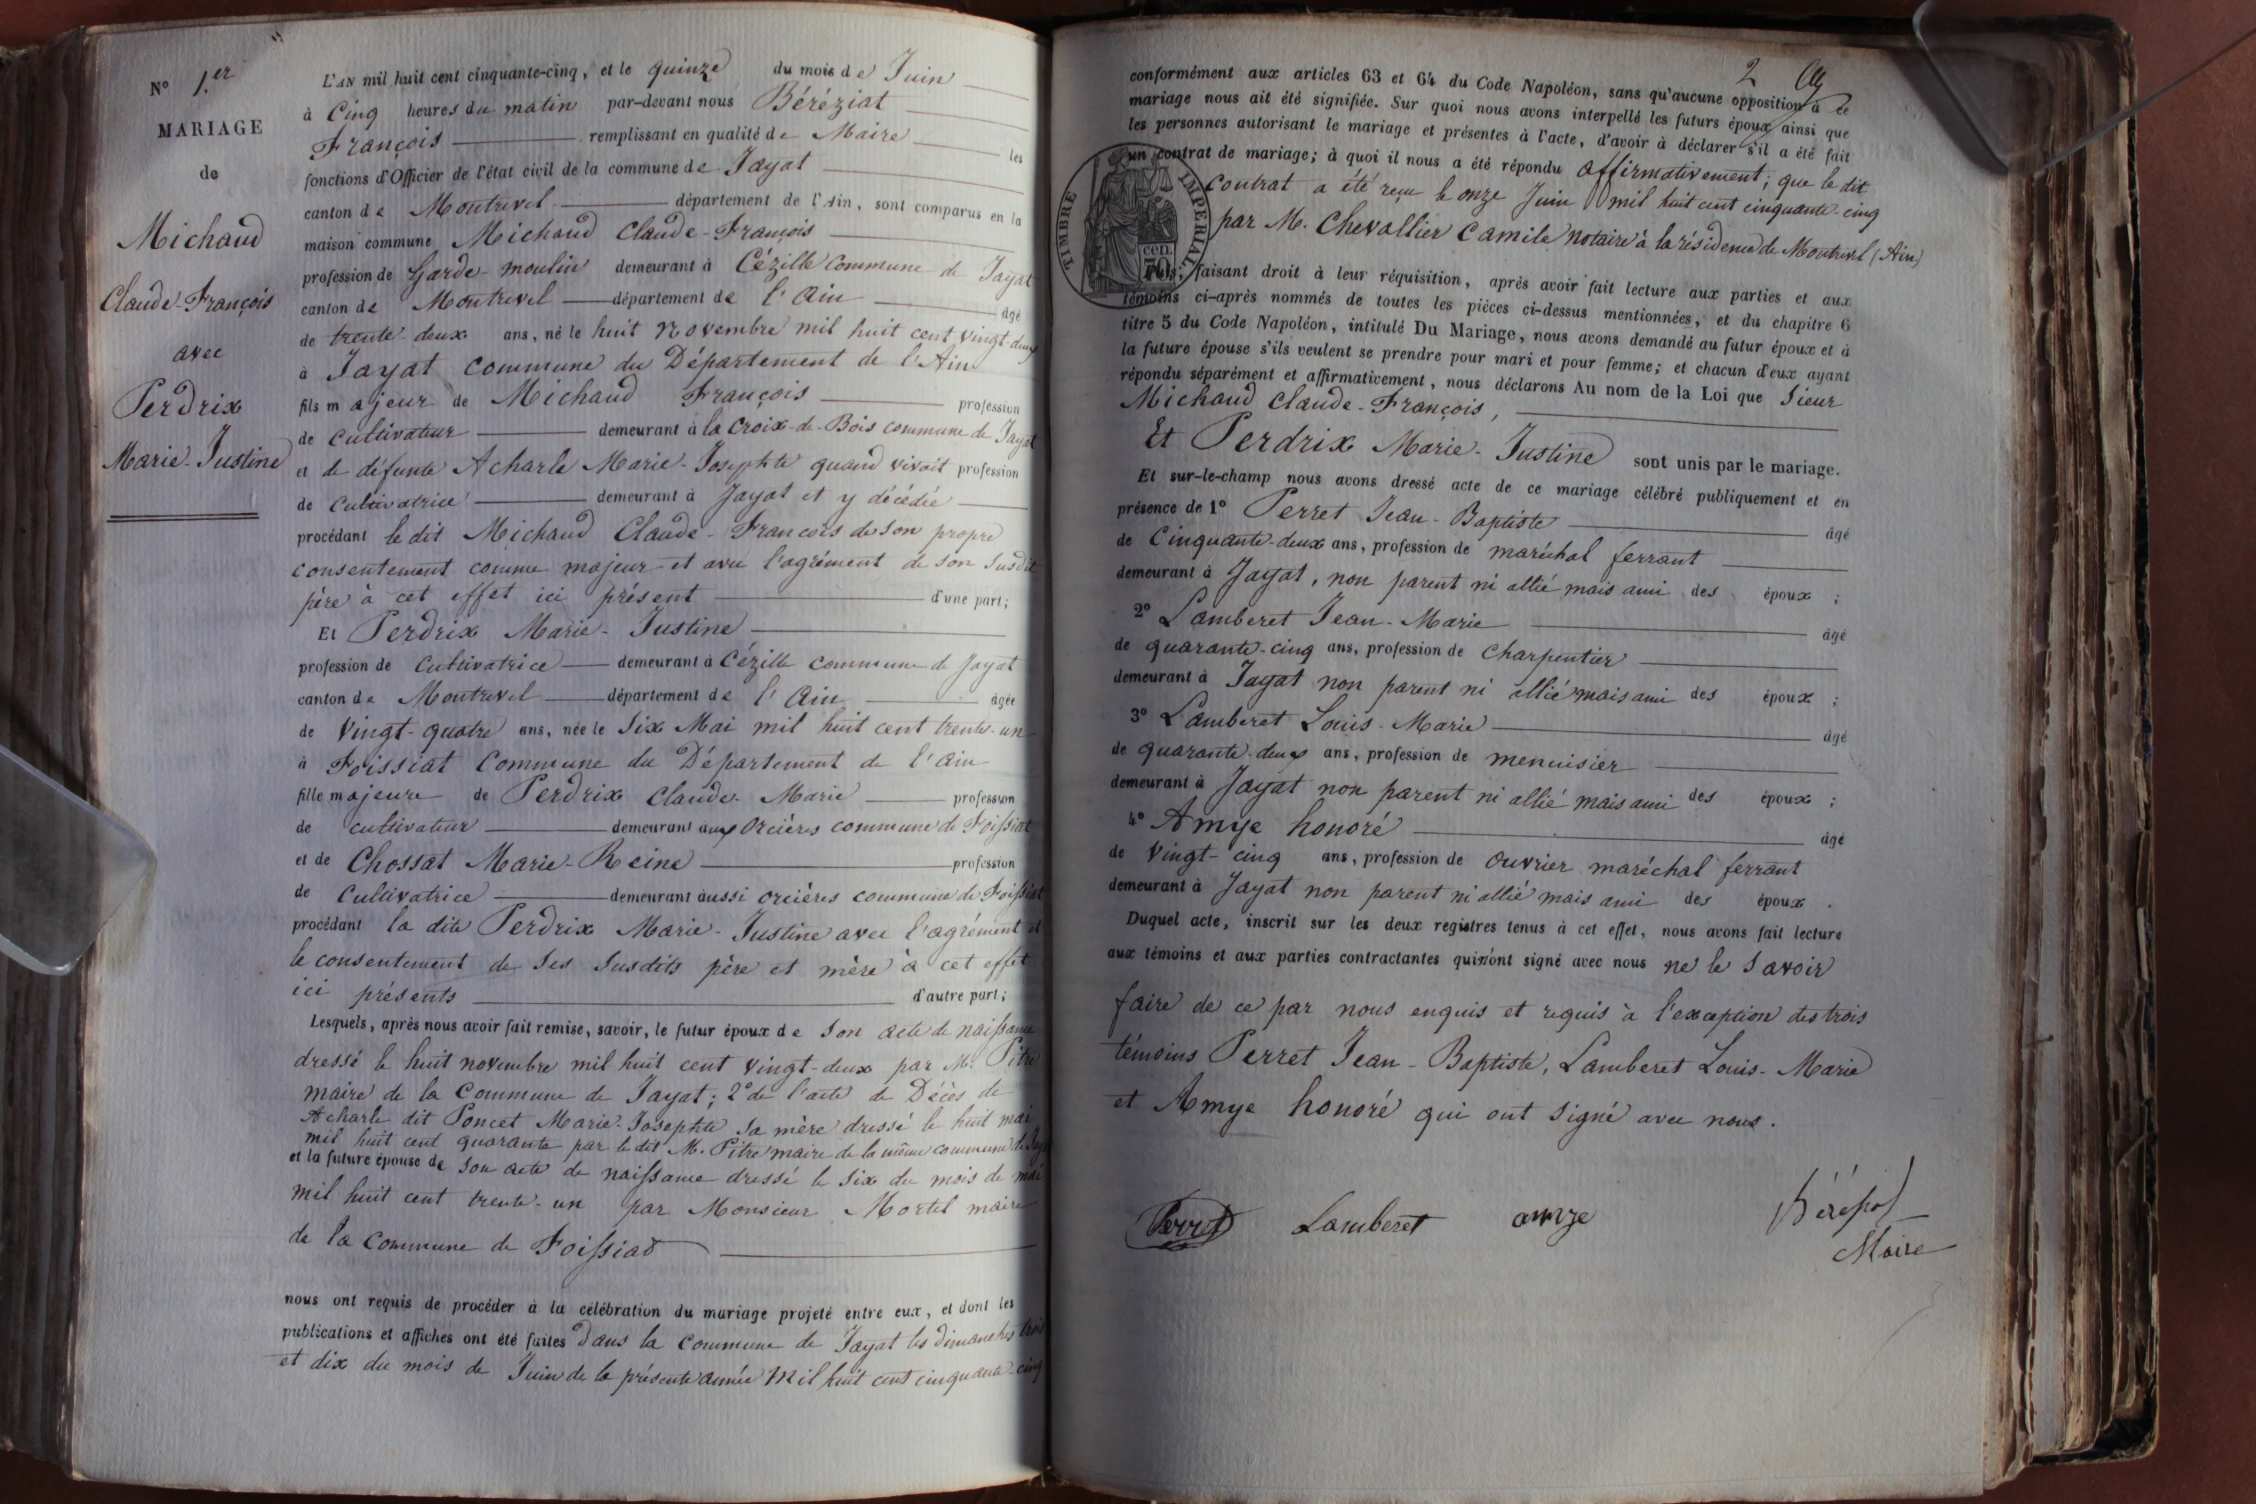 N° 1.er
MARIAGE
de
Michaud
Claude-François
avec
Perdrix
Marie-Justine
L'AN mil huit cent cinquante-cinq, et le quinze du mois de Juin
à Cinq heures du matin par-devant nous Béréziat
François remplissant en qualité de Maire les
fonctions d'Officier de l'état civil de la commune de Jayat
canton de Montrevel département de l'Ain, sont comparus en la
maison commune Michaud Claude-François
profession de Garde-moulin demeurant à Cézille Commune de Jayat
canton de Montrevel département de l'Ain âgé
de trente-deux ans, né le huit Novembre mil huit cent vingt-deux
à Jayat commune du Département de l'Ain
fils majeur de Michaud François profession
de cultivateur demeurant à la Croix-de-Bois commune de Jayat
et de défunte Acharle Marie-Josephte quand vivait profession
de cultivatrice demeurant à Jayat et y décédée
procédant le dit Michaud Claude-François de son propre
consentement comme majeur et avec l'agrément de son susdit
père à cet effet ici présent d'une part;
Et Perdrix Marie-Justine
profession de Cultivatrice demeurant à Cézille commune de Jayat
canton de Montrevel département de l'Ain âgée
de Vingt-quatre ans, née le Six Mai mil huit cent trente-un
à Foissiat Commune du Département de l'Ain
fille majeure de Perdrix Claude-Marie profession
de cultivateur demeurant aux Orcières commune de Foissiat
et de Chossat Marie-Reine profession
de Cultivatrice demeurant aussi orcières commune de Foissiat
procédant la dite Perdrix Marie-Justine avec l'agrément et
le consentement de ses susdits père et mère à cet effet
ici présents d'autre part;
Lesquels, après nous avoir fait remise, savoir, le futur époux de son acte de naissance
dressé le huit novembre mil huit cent vingt-deux par M. Pitre
maire de la Commune de Jayat; 2° de l'acte de Décès de
Acharle dit Poncet Marie-Josephte sa mère dressé le huit mai
mil huit cent quarante par le dit M. Pitre maire de la même commune de Jayat
et la future épouse de son acte de naissance dressé le six du mois de mai
mil huit cent trente-un par Monsieur Mortel maire
de la Commune de Foissiat
nous ont requis de procéder à la célébration du mariage projeté entre eux, et dont les
publications et affiches ont été faites dans la Commune de Jayat les dimanches trois
et dix du mois de Juin de la présente année Mil huit cent cinquante-cinq
2
conformément aux articles 63 et 64 du Code Napoléon, sans qu'aucune opposition à ce
mariage nous ait été signifiée. Sur quoi nous avons interpellé les futurs époux ainsi que
les personnes autorisant le mariage et présentes à l'acte, d'avoir à déclarer s'il a été fait
un contrat de mariage; à quoi il nous a été répondu affirmativement; que le dit
Contrat a été reçu le onze Juin mil huit cent cinquante-cinq
par M. Chevallier Camile notaire à la résidence de Montrevel (Ain)
TIMBRE IMPERIAL
cen. 70
Puis, faisant droit à leur réquisition, après avoir fait lecture aux parties et aux
témoins ci-après nommés de toutes les pièces ci-dessus mentionnées, et du chapitre 6
titre 5 du Code Napoléon, intitulé Du Mariage, nous avons demandé au futur époux et à
la future épouse s'ils veulent se prendre pour mari et pour femme; et chacun d'eux ayant
répondu séparément et affirmativement, nous déclarons Au nom de la Loi que Sieur
Michaud Claude-François,
Et Perdrix Marie-Justine sont unis par le mariage.
Et sur-le-champ nous avons dressé acte de ce mariage célébré publiquement et en
présence de 1° Perret Jean-Baptiste âgé
de Cinquante-deux ans, profession de maréchal ferrant
demeurant à Jayat, non parent ni allié mais ami des époux ;
2° Lamberet Jean-Marie âgé
de quarante-cinq ans, profession de Charpentier
demeurant à Jayat non parent ni allié mais ami des époux ;
3° Lamberet Louis-Marie âgé
de quarante-deux ans, profession de menuisier
demeurant à Jayat non parent ni allié mais ami des époux ;
4° Amye honoré âgé
de Vingt-cinq ans, profession de ouvrier maréchal ferrant
demeurant à Jayat non parent ni allié mais ami des époux .
Duquel acte, inscrit sur les deux registres tenus à cet effet, nous avons fait lecture
aux témoins et aux parties contractantes qui n'ont signé avec nous ne le savoir
faire de ce par nous enquis et requis à l'exception des trois
témoins Perret Jean-Baptiste, Lamberet Louis-Marie
et Amye honoré qui ont signé avec nous.
Perret Lamberet amye
Maire